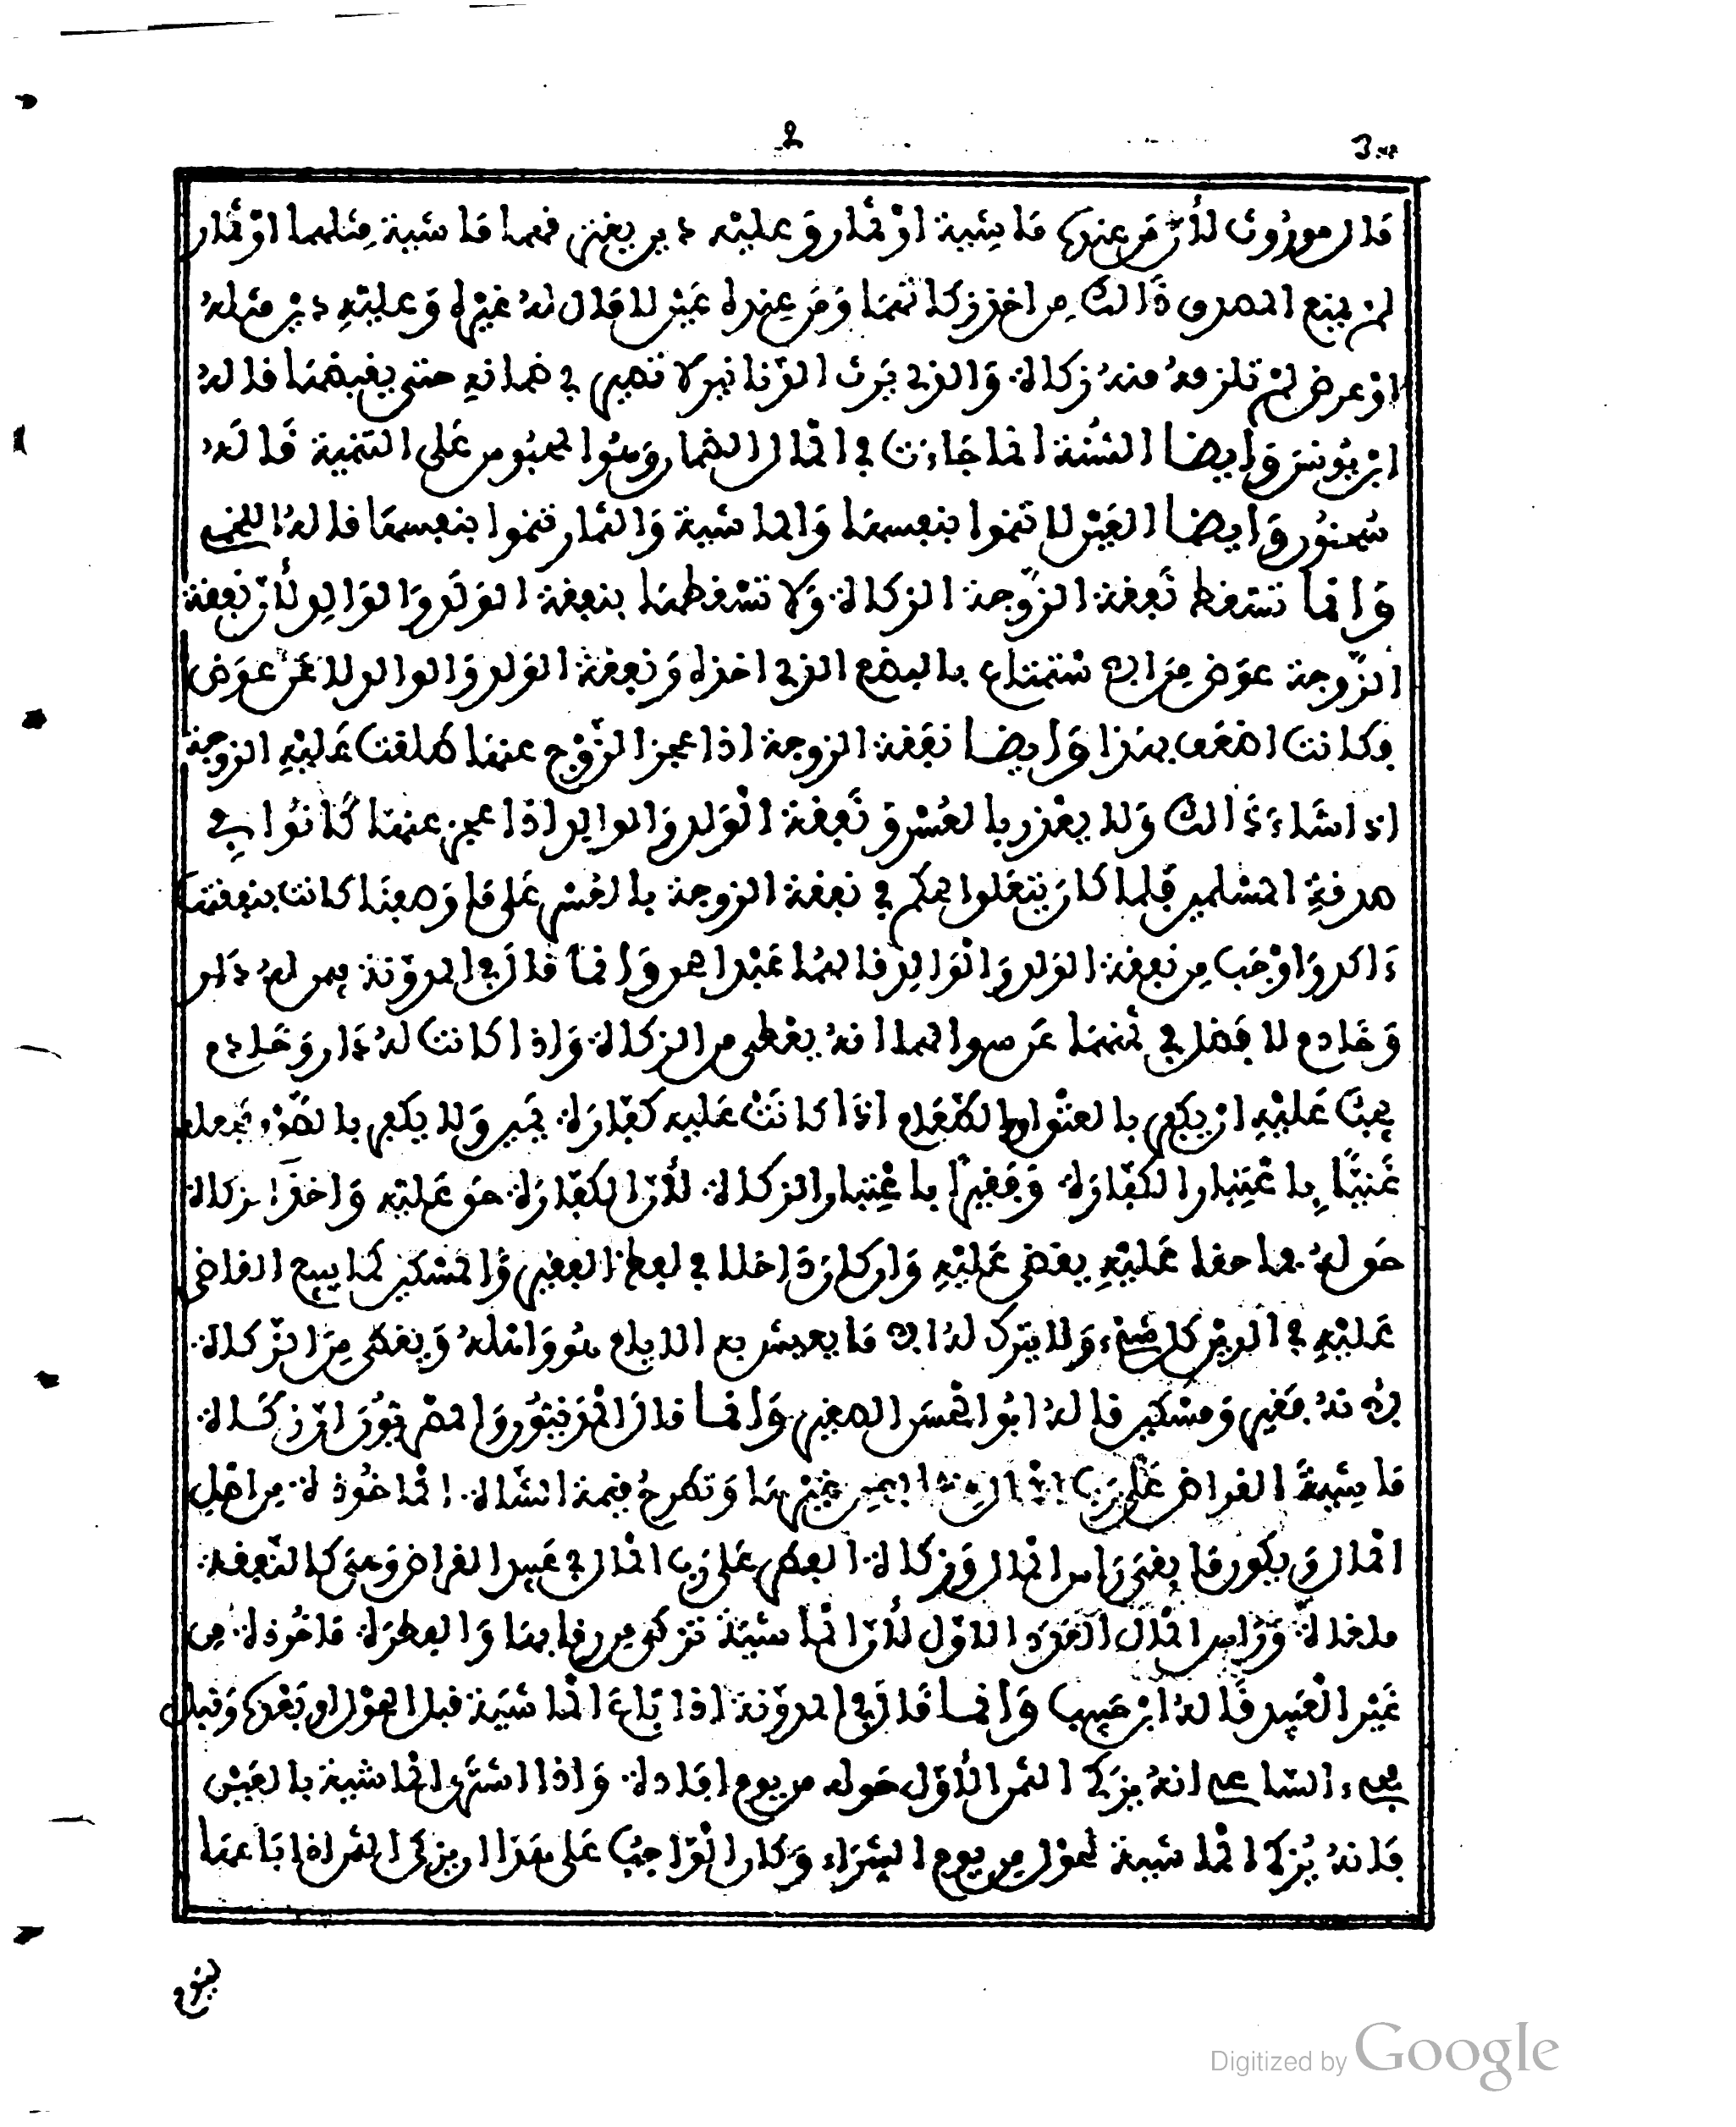 مال موروث لأن من عنده ماشية او ثمار وعليه دين يغترق فيهما ماشية مثلهما او ثمار
لم يمنع المصدق ذالك من اخذ زكاتهما ومن عنده عين لا مال له غيره وعليه دين مثله
او عرض لم تلزمه منه زكاة والذي يرث الدنانير لا تصير في ضمانه حتى يقبضها قاله
ابن يونس وايضا السنة انما جاءت في المال الضمار وهوا المحبوس على التنمية قاله
سحنون وايضا العين لا تنموا بنفسها والماشية والثمار تنموا بنفسها قاله اللخمي
وانما تسقط نفقة الزوجة الزكاة ولا تسقطها بنفقة الولد والوالد لأن نفقة
الزوجة عوض من الاستمتاع بالبضع الذي اخذه ونفقة الولد والوالد لا عن عوض
فكانت اضعف بهذا وايضا نفقة الزوجة اذا عجز الزوج عنها طلقت عليه الزوجة
اذا شاءت ذالك ولا يعذر بالعسر ونفقة الولد والوالد اذا عجز عنها كانوا في
صدقة المسلمين فلما كان يتعلوا لحكم في نفقة الزوجة بالعسر على ما وصفنا كانت بنفقتها
ءاكد واوجب من نفقة الولد والوالد قالهما عبد الحق وانما قال في المدونة فيمن له دار
وخادم لا فضل في ثمنهما عن سواهما انه يعطى من الزكاة واذا كانت له دار وخادم
يجب عليه ان يكفر بالعتق او الطعام اذا كانت عليه كفارة يمين ولا يكفر بالصوم فجعله
غنيا باعتبار الكفارة وفقيرا باعتبار الزكاة لأن الكفارة حق عليه واخذ الزكاة
حق له فما حقا عليه يقضى عليه وان كان داخلا في لفظ الفقير والمسكين كما يبيع القاضي
عليه في الدين كل شيء ولا يترك له الا ما يعيش به الايام هو واهله ويعطى من الزكاة
لأنه فقير ومسكين قاله ابو الحسن الصغير وانما قال المزفيثور والمصريون ان زكاة
ماشية القراض على رب المال من غيرها وتطرح قيمة الشاة المأخوذة من اصل
المال ويكون ما بقي رأس المال وزكاة الفطر على رب المال في عبيد القراض وهي كالنفقة
ملغاة ورأس المال العدد الاول لأن الماشية تزكى من رقابها والفطرة مأخوذة من
غير العبيد قاله ابن حبيب وانما قال في المدونة اذا باع الماشية قبل الحول او بعده وقبل
مجيء الساعي انه يزكي الثمن الأول حوله من يوم افاده واذا اشترى الماشية بالعين
فانه يزكي الماشية لحول من يوم الشراء وكان الواجب على هذا ان يزكي الثمن اذا باعها